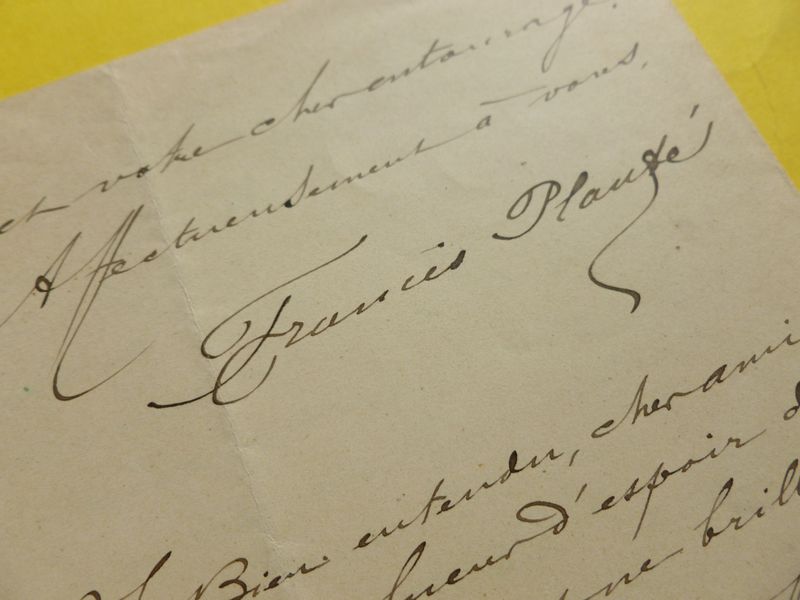 et votre cher entourage.
Affectueusement à vous.
Francis Planté
Bien entendu, cher ami
lueur d'espoir d
ne brill